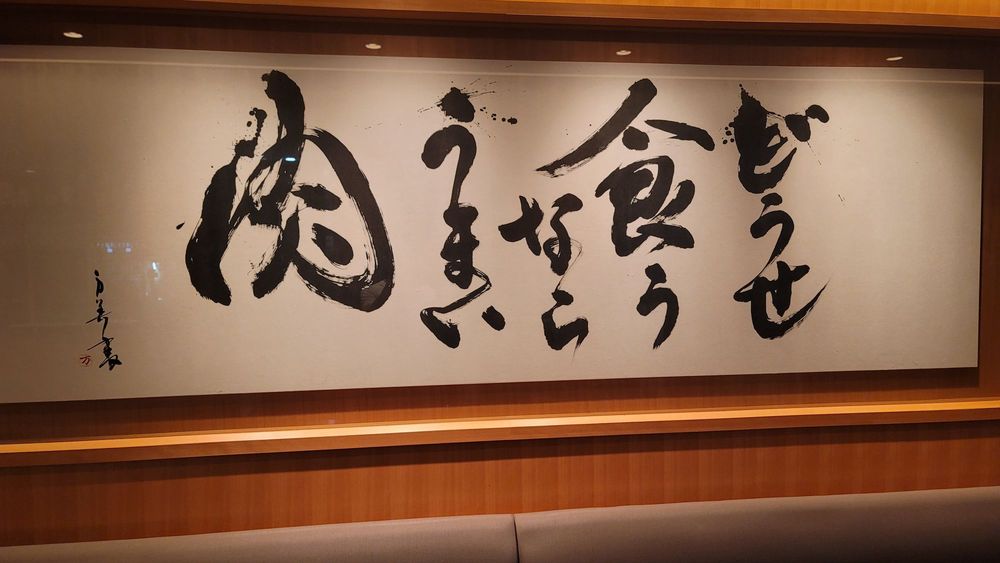 どうせ
食うなら
うまい
肉